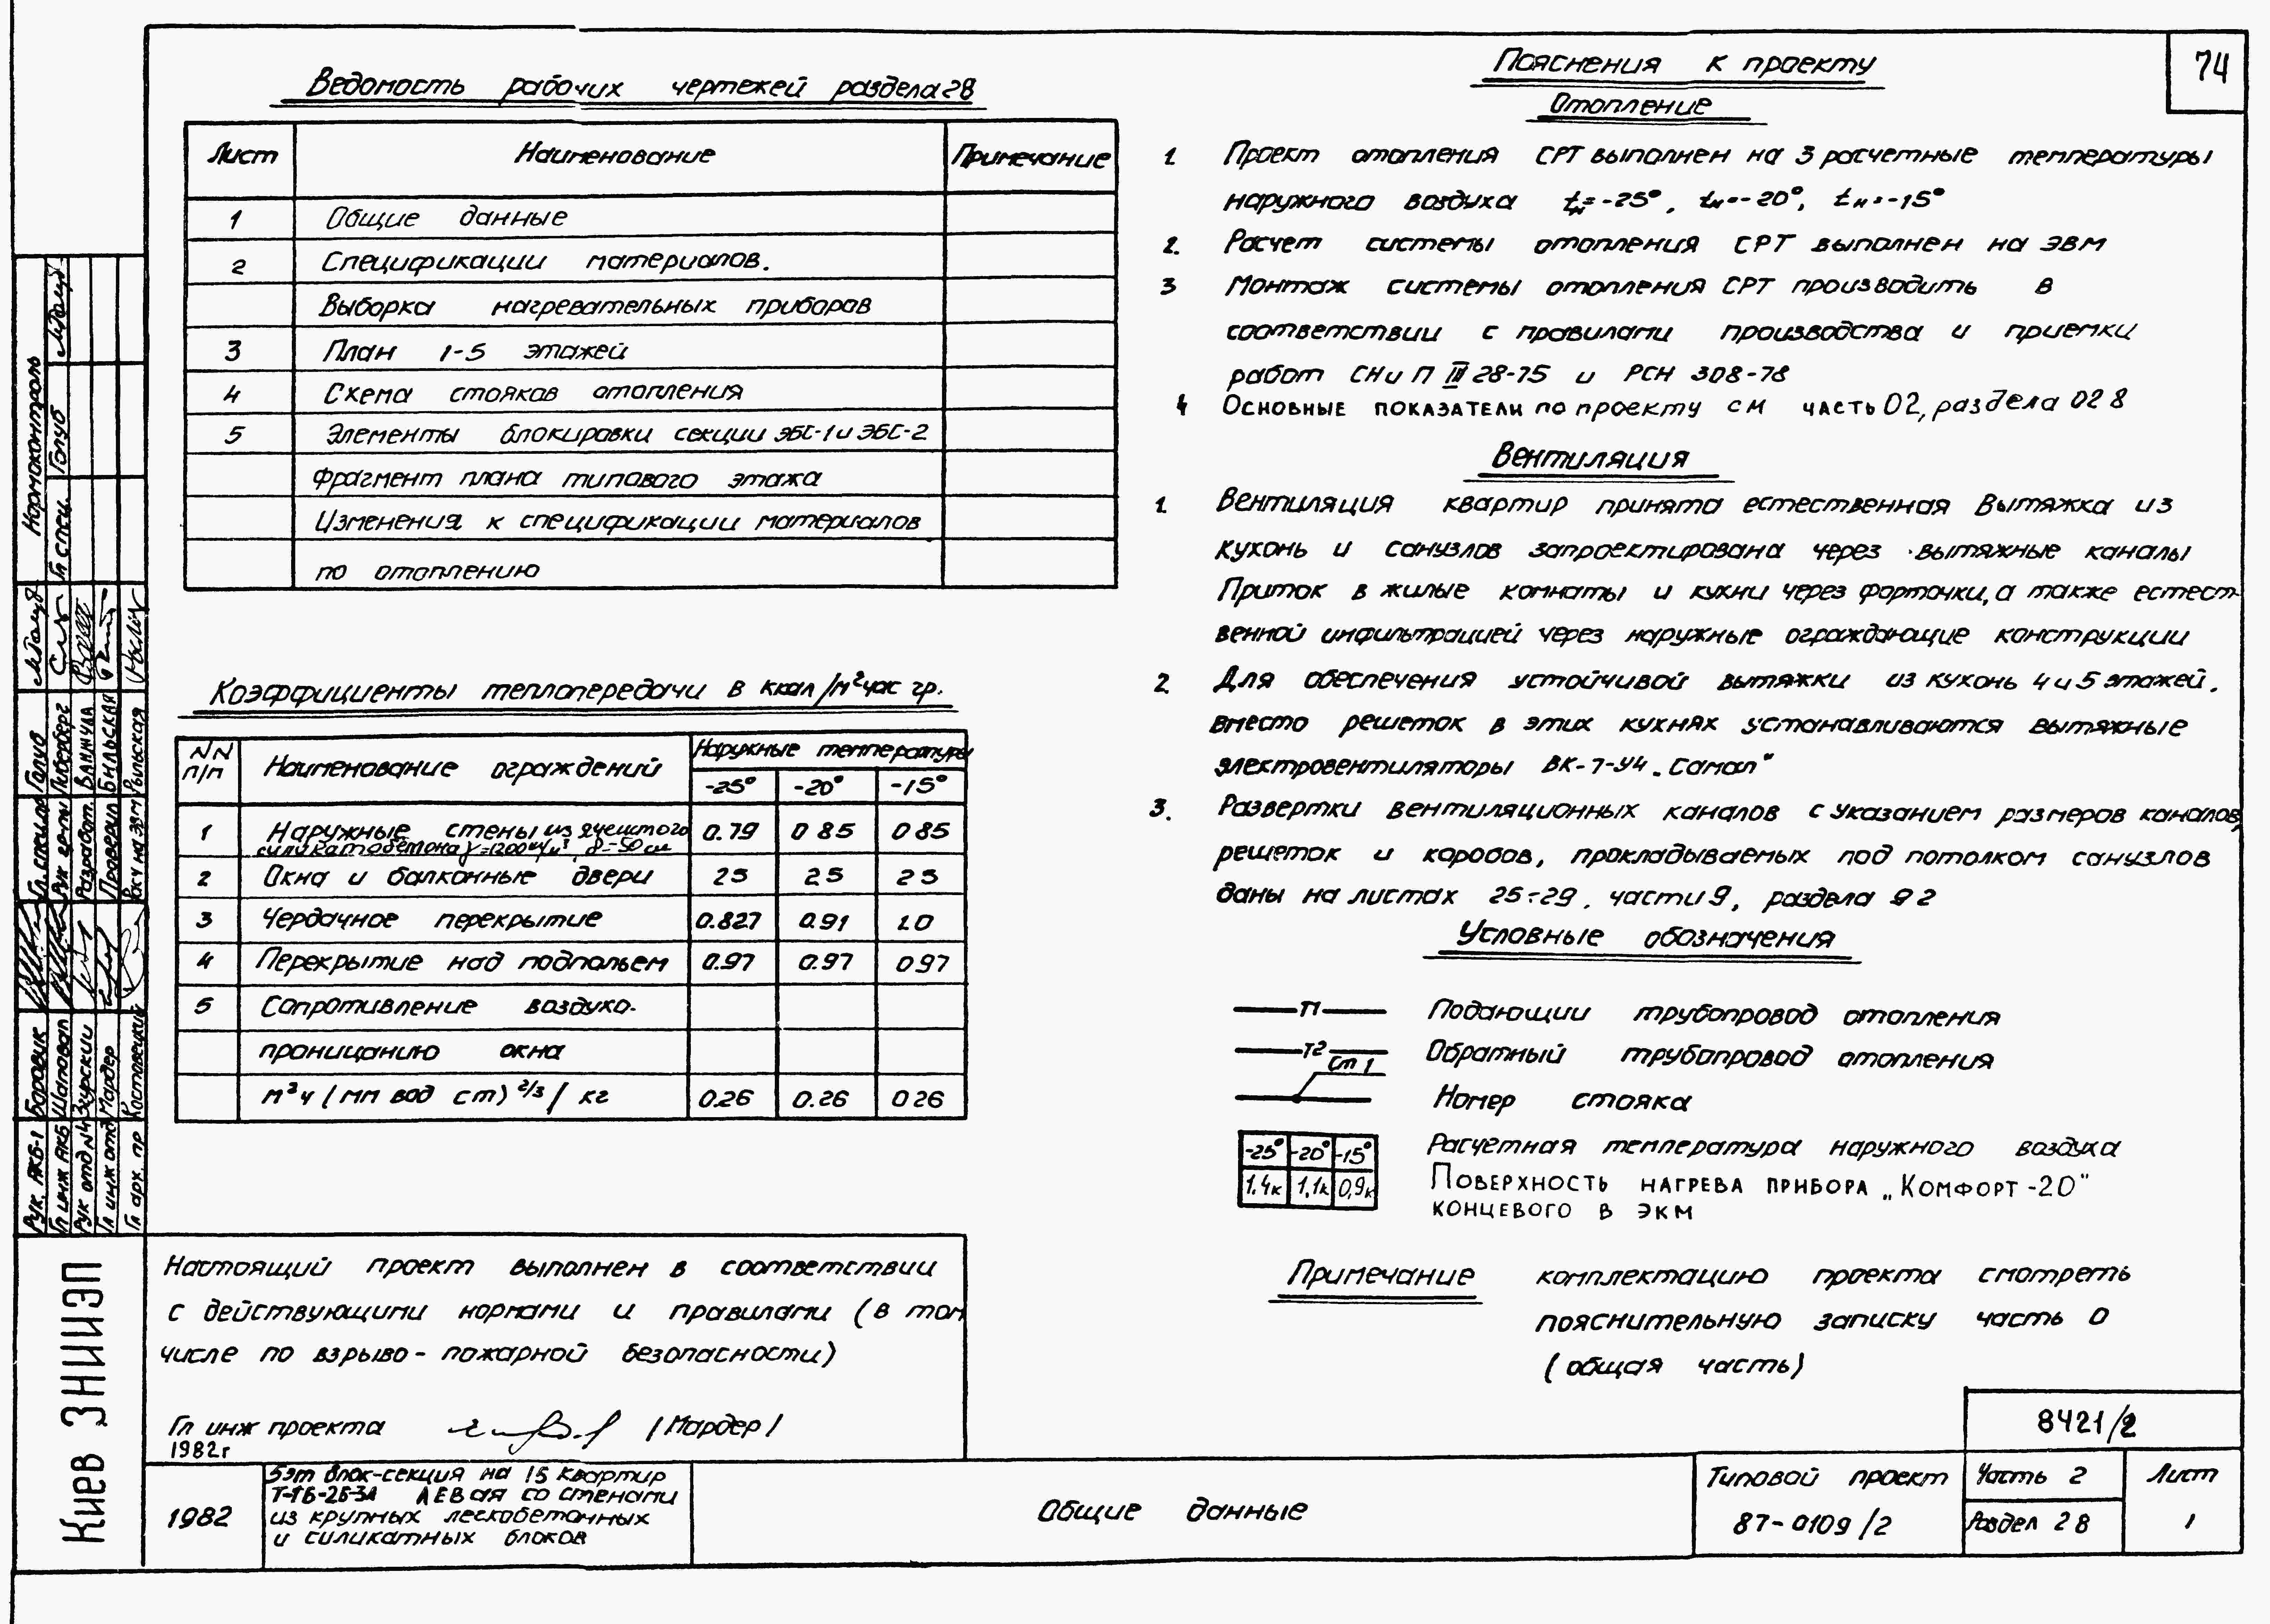 74
Ведомость рабочих чертежей раздела 2В
Лист Наименование Примечание
1 Общие данные
2 Спецификации материалов.
Выборка нагревательных приборов
3 План 1-5 этажей
4 Схема стояков отопления
5 Элементы блокировки секции ЭБС-1 и ЭБС-2
Фрагмент плана типового этажа
Изменения к спецификации материалов
по отоплению
Коэффициенты теплопередачи в ккал/м²час гр.
NN п/п Наименование ограждений Наружные температуры
-25° -20° -15°
1 Наружные стены из ячеистого 0.79 0 85 0 85
силикатобетона γ=1200 кг/м³, δ-50см
2 Окна и балконные двери 25 25 25
3 Чердачное перекрытие 0.827 0.91 1.0
4 Перекрытие над подпольем 0.97 0.97 0 97
5 Сопротивление воздухо-
проницанию окна
м²ч (мм вод ст) 2/3 / кг 0.26 0.26 0 26
Настоящий проект выполнен в соответствии
с действующими нормами и правилами (в том
числе по взрыво-пожарной безопасности)
Гл инж проекта /Мардер/
1982г
Пояснения к проекту
Отопление
1. Проект отопления СРТ выполнен на 3 расчетные температуры
наружного воздуха tн=-25°, tн=-20°, tн=-15°
2. Расчет системы отопления СРТ выполнен на ЭВМ
3 Монтаж системы отопления СРТ производить в
соответствии с правилами производства и приемки
работ СНиП III 28-75 и РСН 308-78
4 Основные показатели по проекту см часть 02, раздела 02 8
Вентиляция
1. Вентиляция квартир принята естественная Вытяжка из
кухонь и санузлов запроектирована через вытяжные каналы
Приток в жилые комнаты и кухни через форточки, а также естест-
венной инфильтрацией через наружные ограждающие конструкции
2. Для обеспечения устойчивой вытяжки из кухонь 4 и 5 этажей.
вместо решеток в этих кухнях устанавливаются вытяжные
электровентиляторы ВК-7-У4 „Самал"
3. Развертки вентиляционных каналов с указанием размеров каналов,
решеток и коробов, прокладываемых под потолком санузлов
даны на листах 25÷29, части 9, раздела 9 2
Условные обозначения
Т1 Подающии трубопровод отопления
Т2 Обратный трубопровод отопления
Ст 1 Номер стояка
-25° -20° -15° Расчетная температура наружного воздуха
1.4к 1,1к 0,9к Поверхность нагрева прибора „Комфорт-20"
концевого в экм
Примечание комплектацию проекта смотреть
пояснительную записку часть 0
(общая часть)
8421/2
1982
5эт блок-секция на 15 квартир
Т-1Б-2Б-3А левая со стенами
из крупных легкобетонных
и силикатных блоков
Общие данные
Типовой проект
87-0109/2
Часть 2
Раздел 2 В
Лист
1
Киев ЗНИИЭП
Рук. АКБ-1 Боровик Гл. спец.ов Голуб Нормоконтроль
Гл инж АКБ Шаповал Рук гр-пы Гл спец. Голуб
Рук отд N4 Разработ. Ванжула
Гл инж отд Мардер Проверил Бильская
Гл арх. пр Костовецкий Расч на ЭВМ Рыльская